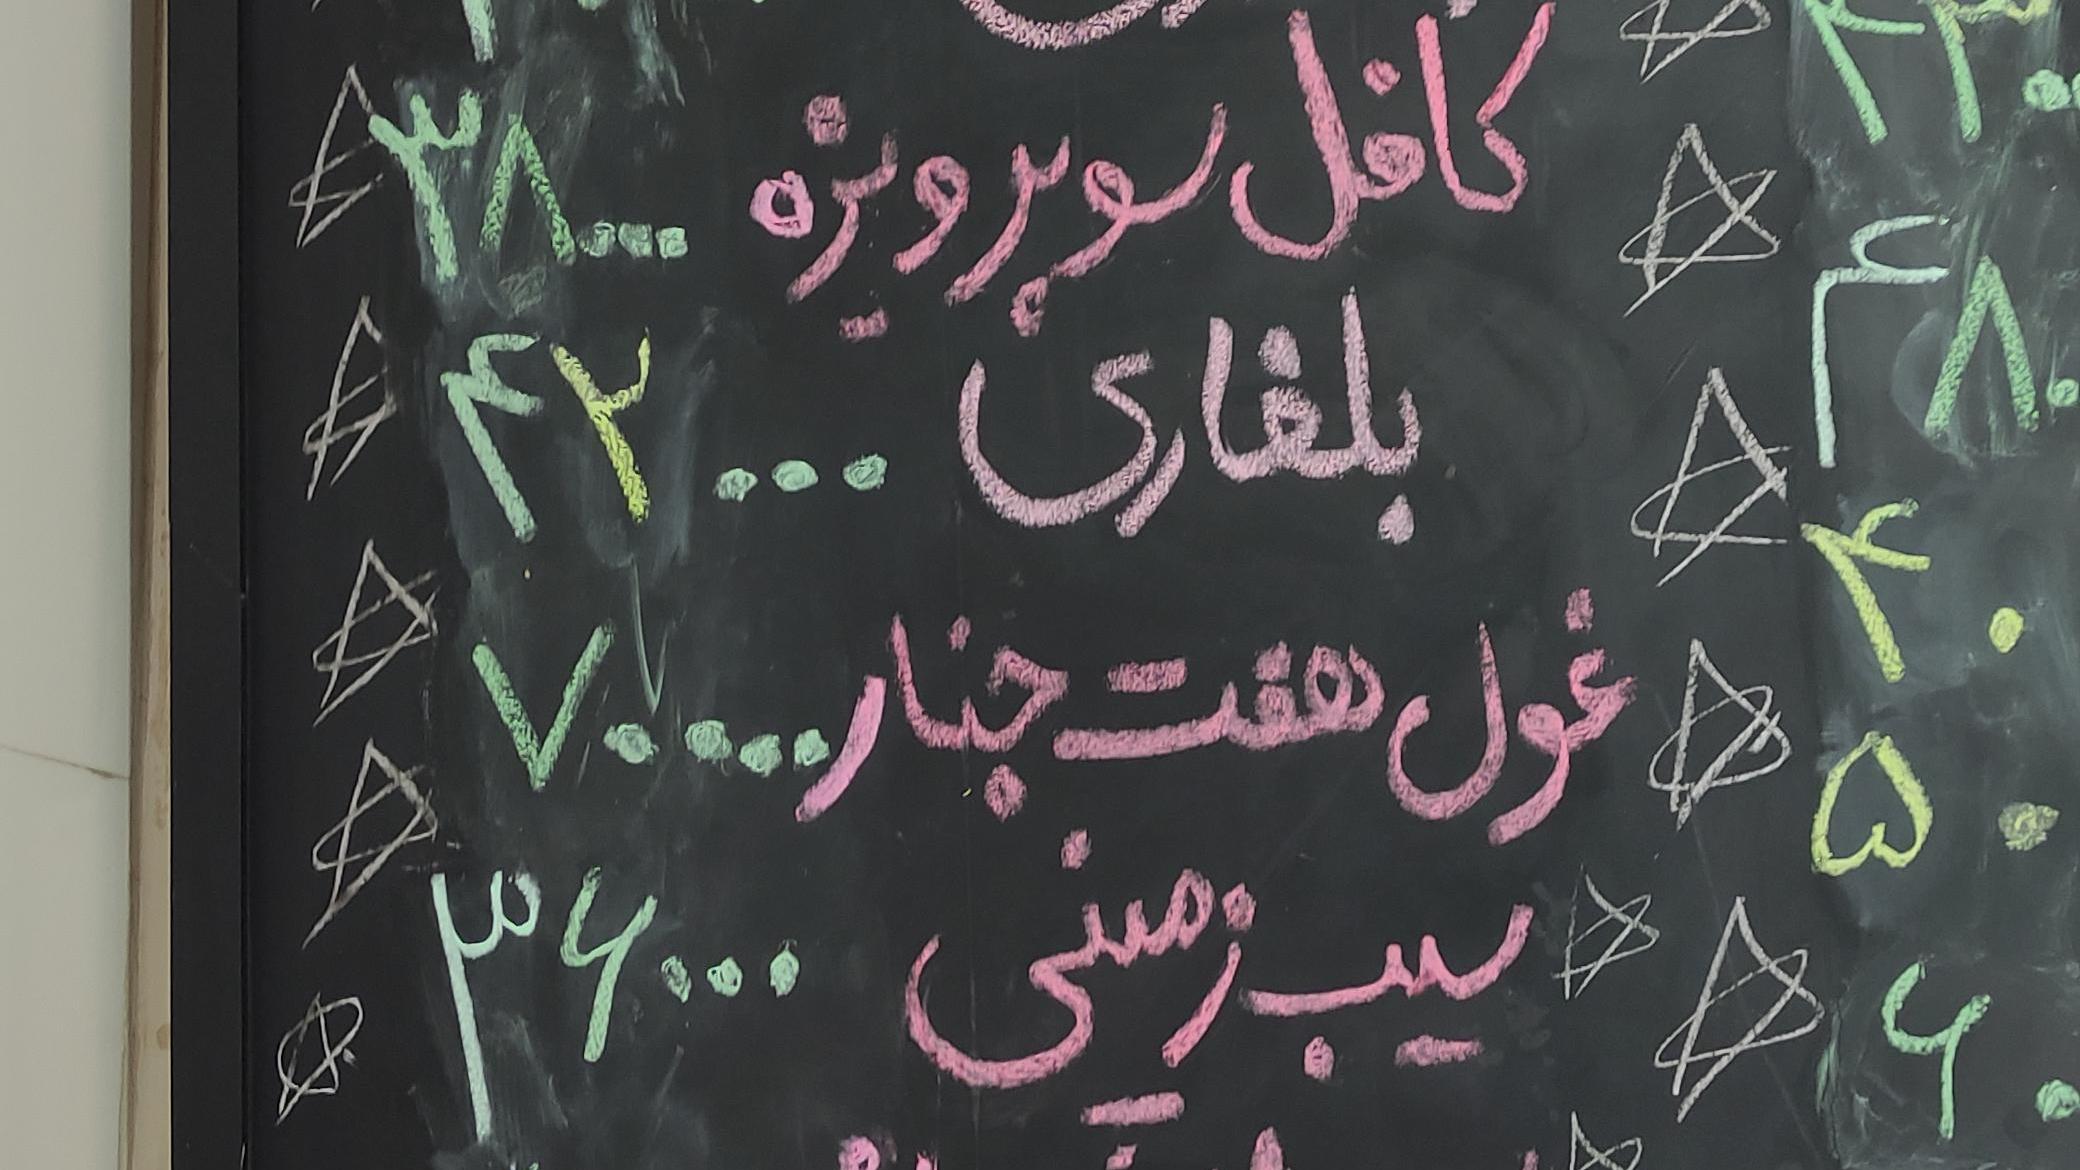 کافل سوپر ویژه ۳۸۰۰۰
بلغاری ۴۲۰۰۰
غول هفت خبار ۷۰۰۰۰
سیب زمینی ۳۶۰۰۰
۴۸۰
۴۰
۵۰
۶۰